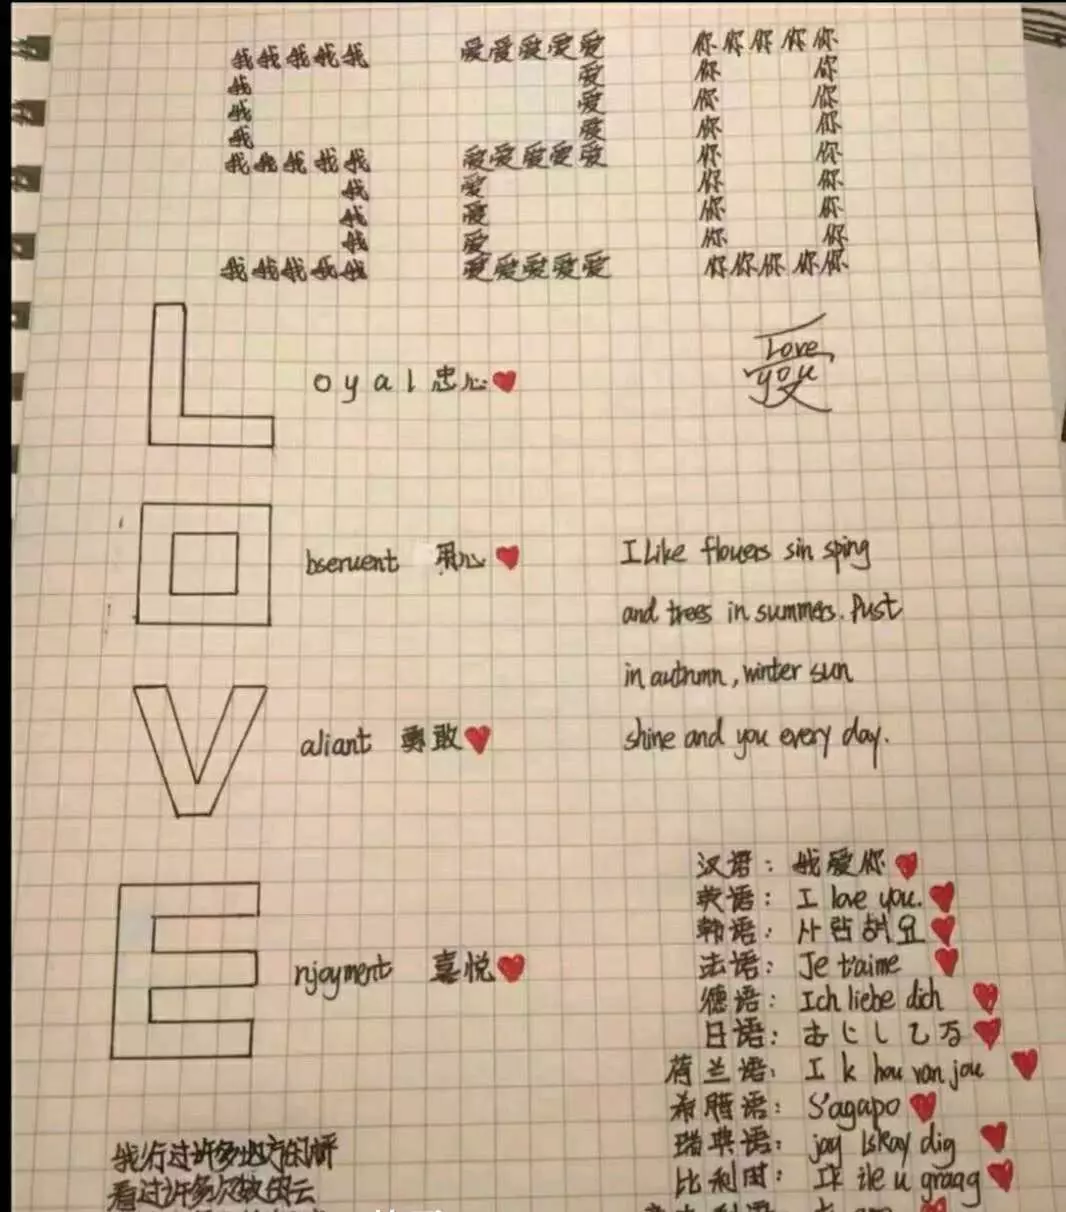 我我我我我 爱爱爱爱爱 你你你你你
我 爱 你 你
我 爱 你 你
我 爱 你 你
我我我我我 爱爱爱爱爱 你 你
我 爱 你 你
我 爱 你 你
我 爱 你 你
我我我我我 爱爱爱爱爱 你你你你你
Love
you
Loyal 忠心
Obseruent 用心
Valiant 勇敢
Enjoyment 喜悦
I Like flowers sin sping
and trees in summers. Pust
in autnmn, winter sun
shine and you every day.
汉语: 我爱你
英语: I love you.
韩语: 사람해요
法语: Je t'aime
德语: Ich liebe dich
日语: あじしてる
荷兰语: Ik hou van jou
希腊语: S'agapo
瑞典语: jag Iskay dig
比利时: Ik zie u graag
我行过许多地方的桥
看过许多次数的云